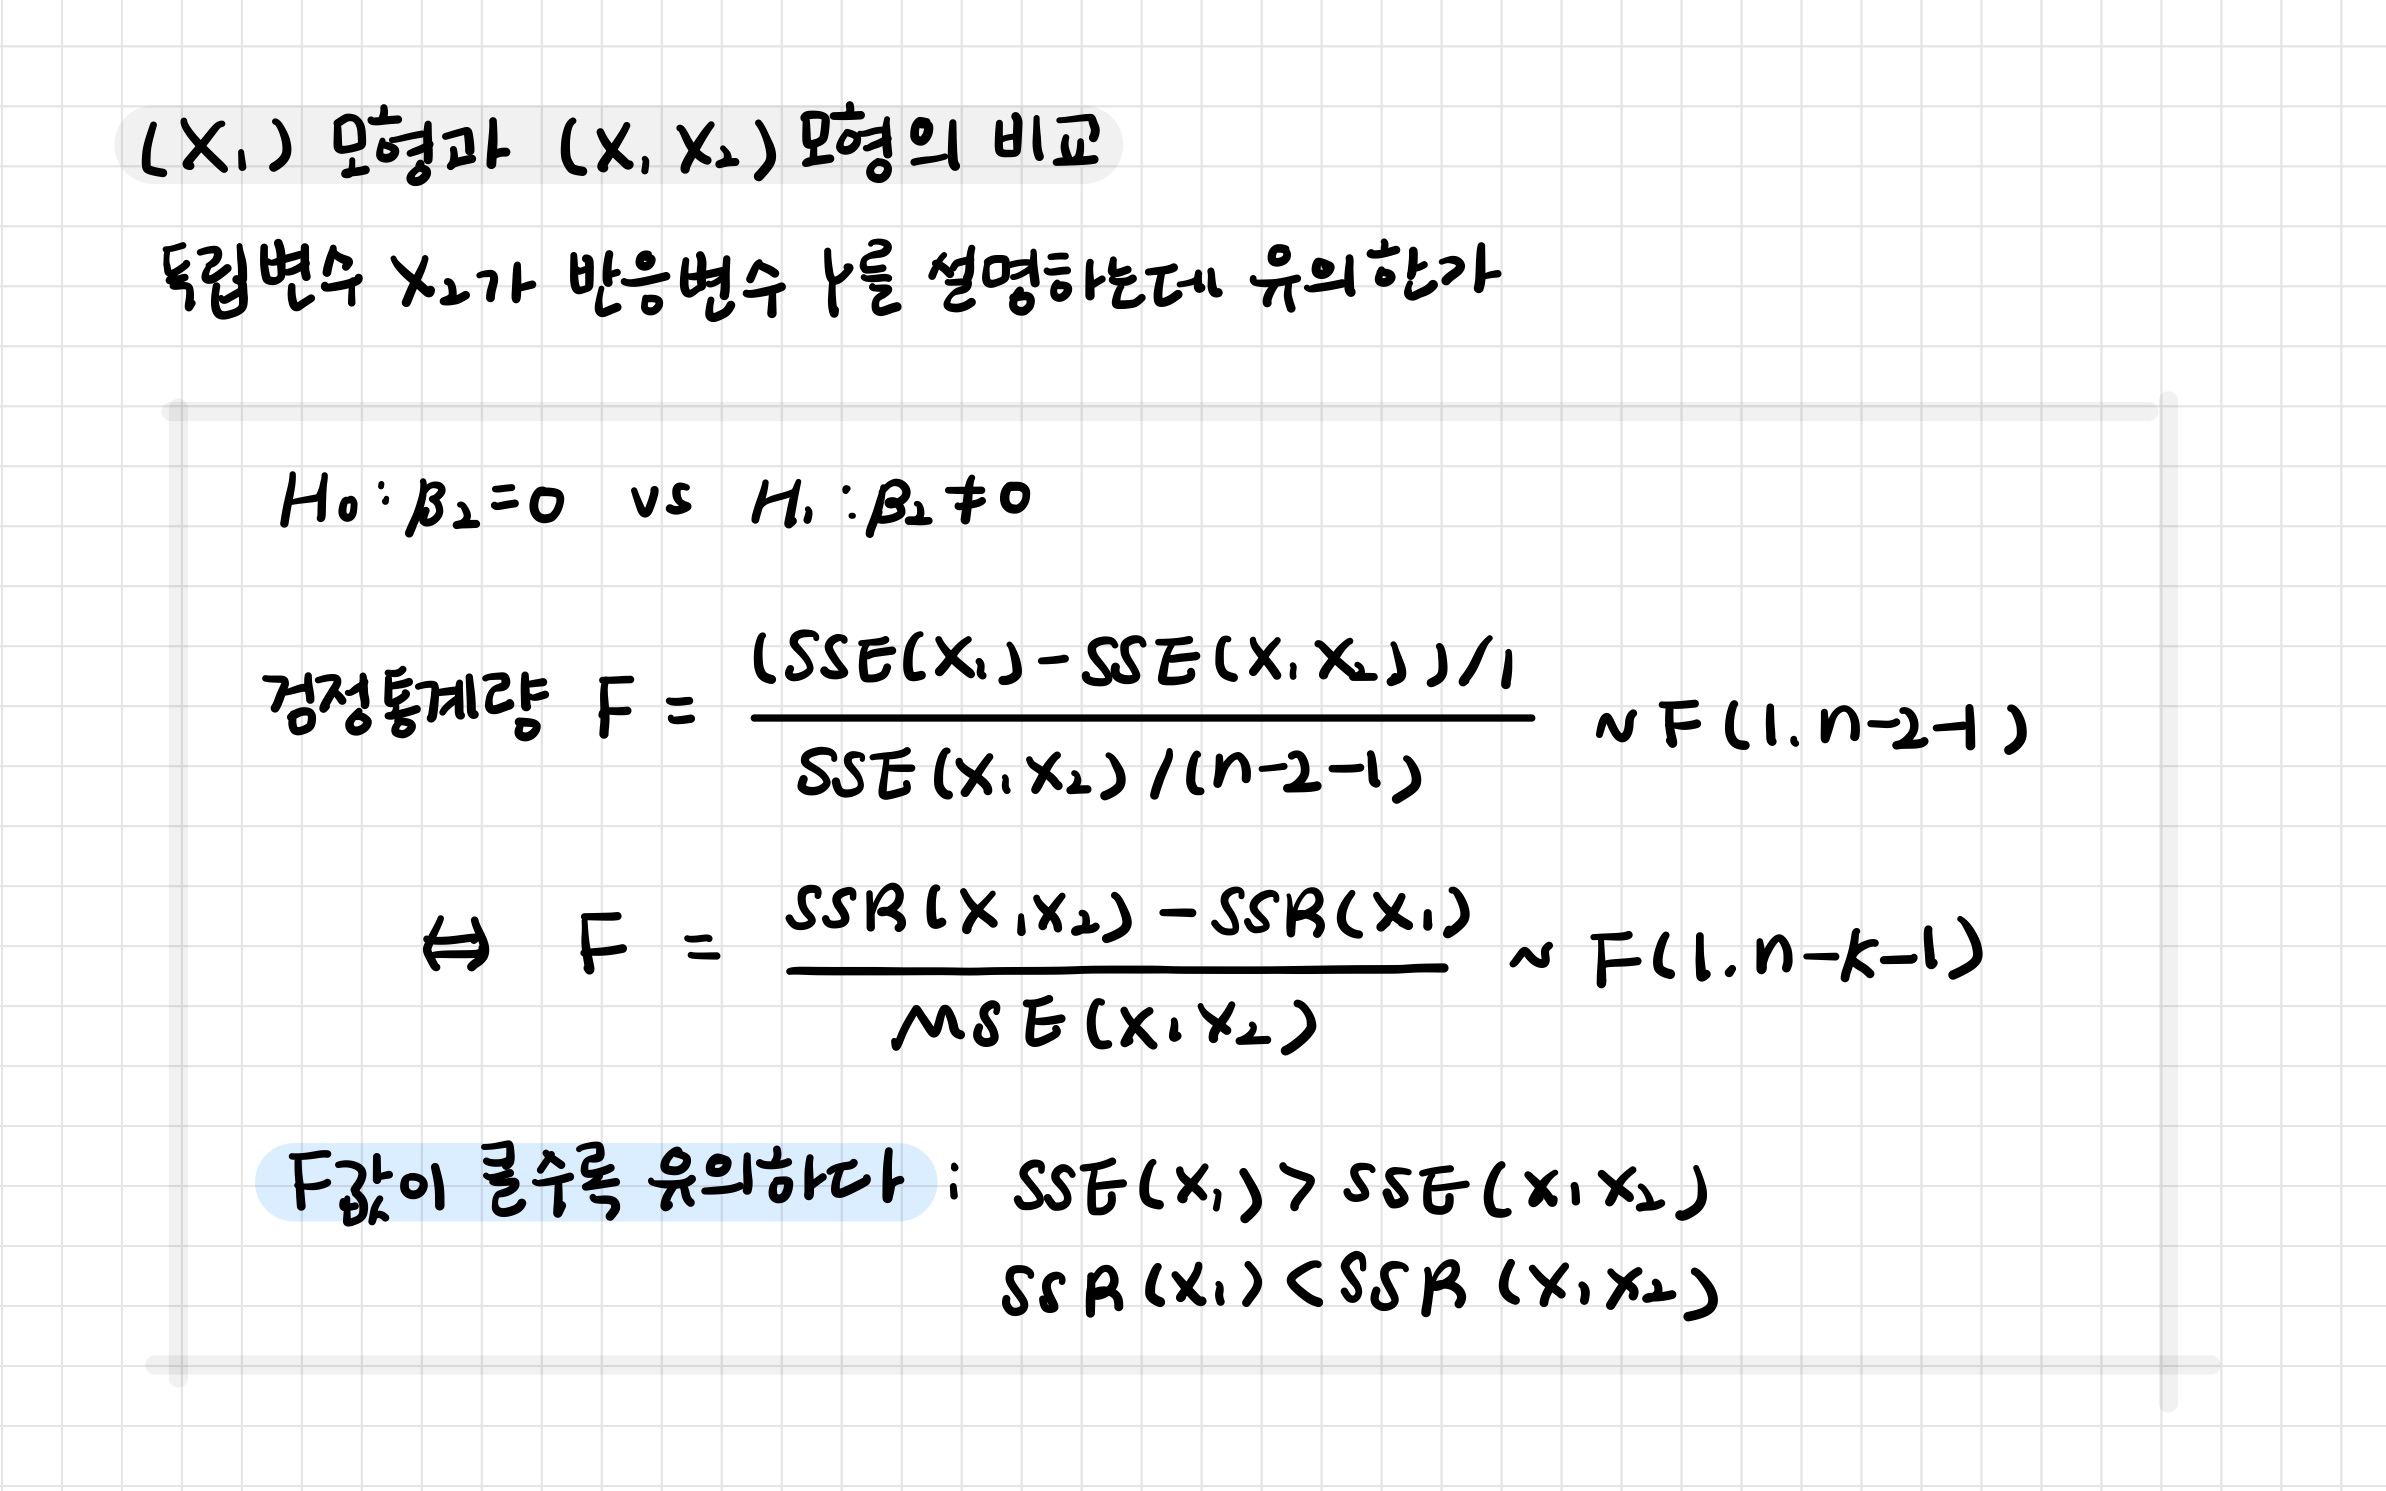 (X₁) 모형과 (X₁ X₂) 모형의 비교
독립변수 X₂가 반응변수 Y를 설명하는데 유의한가
H₀ : β₂ = 0 vs H₁ : β₂ ≠ 0
검정통계량 F = (SSE(X₁) - SSE(X₁ X₂)) / 1
SSE(X₁ X₂) / (n-2-1)
~ F(1, n-2-1)
⇔ F = SSR(X₁ X₂) - SSR(X₁)
MSE(X₁ X₂)
~ F(1, n-k-1)
F값이 클수록 유의하다 : SSE(X₁) > SSE(X₁ X₂)
SSR(X₁) < SSR(X₁ X₂)